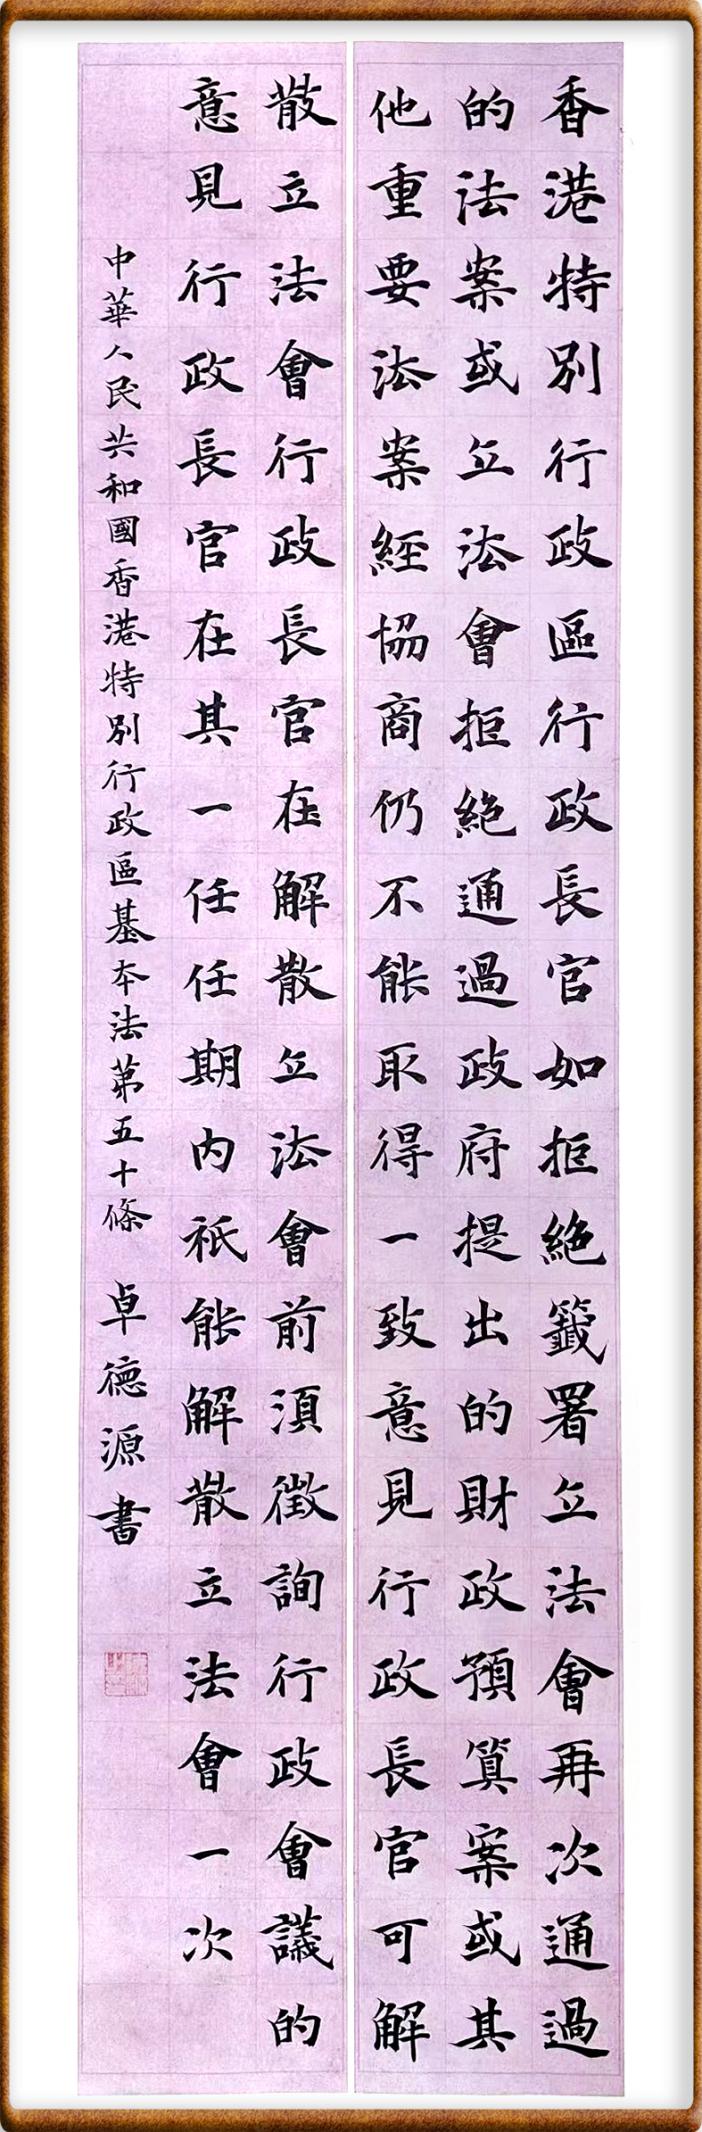 香港特別行政區行政長官如拒絕籤署立法會再次通過
的法案或立法會拒絕通過政府提出的財政預算案或其
他重要法案經協商仍不能取得一致意見行政長官可解
散立法會行政長官在解散立法會前須徵詢行政會議的
意見行政長官在其一任任期內祇能解散立法會一次
中華人民共和國香港特別行政區基本法第五十條 卓德源書